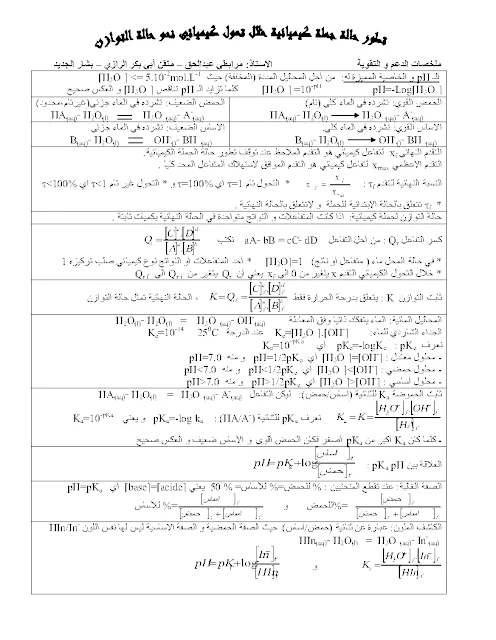 تطور حالة جملة كيميائية خلال تحول كيميائي نحو حالة التوازن
ملخصات الدعم و التقوية الاستاذ: مرابطي عبدالحق – متقن أبي بكر الرازي – بشار الجديد
الـ pH و الخاصية المميزة له: من اجل المحاليل المددة (المخففة) حيث [H₃O ] <= 5.10⁻²mol.L⁻¹
pH=-Log[H₃O ] [H₃O ] =10⁻ᵖᴴ كلما تزايد الـ pH تناقص [H₃O ] و العكس صحيح
الحمض القوي: تشرده في الماء كلي (تام)
HA(aq)- H₂O(l) → H₃O (aq)- A⁻(aq)
الحمض الضعيف: تشرده في الماء جزئي(غير تام=محدود)
HA(aq)- H₂O(l) = H₃O (aq)- A⁻(aq)
الاساس القوي: تشرده في الماء كلي.
B(aq)- H₂O(l) → OH⁻(aq)- BH (aq)
الاساس الضعيف: تشرده في الماء جزئي
B(aq)- H₂O(l) = OH⁻(aq)- BH (aq)
التقدم النهائي xf لتفاعل كيميائي هو التقدم الملاحظ عند توقف تطور حالة الجملة الكيميائية.
التقدم الاعظمي xmax لتفاعل كيميائي هو التقدم الموافق لاستهلاك المتفاعل المحد كليا .
النسبة النهائية لتقدم τf : τf = xf / xmax * التحول تام τ=1 أي τ=100% * التحول غير تام τ<1 أي τ<100%
* τf تتعلق بالحالة الابتدائية للجملة و لاتتعلق بالحالة النهائية .
حالة التوازن لجملة كيميائية: اذا كانت المتفاعلات و النواتج متواجدة في الحالة النهائية بكميات ثابتة .
كسر التفاعل Qr : من اجل التفاعل aA- bB = cC- dD نكتب Q = [C]ᶜ.[D]ᵈ / [A]ᵃ.[B]ᵇ
* في حالة المحل ماء ( متفاعل أو ناتج) [H₂O]=1 * احد المتفاعلات أو النواتج نوع كيميائي صلب تركيزه 1
* خلال التحول الكيميائي التقدم x يتغير من 0 الى xf يعني أن Qr يتغير من Qr.i الى Qr.f
ثابت التوازن K : يتعلق بدرجة الحرارة فقط K = Qrf = [C]ᶜf.[D]ᵈf / [A]ᵃf.[B]ᵇf ، الحالة النهائية تمثل حالة التوازن
المحاليل المائية: الماء يتفكك ذاتيا وفق المعادلة H₂O(l)- H₂O(l) = H₃O (aq)- OH⁻(aq)
الجداء الشاردي للماء: Ke=[H₃O ].[OH⁻] عند الدرجة 25⁰C Ke=10⁻¹⁴
نعرف pKe : pKe=-logKe أي Ke=10⁻ᵖᴷᵉ
- محلول معتدل : [H₃O ]=[OH⁻] أي pH=1/2pKe و منه pH=7.0
- محلول حمضي : [H₃O ]>[OH⁻] أي pH<1/2pKe و منه pH<7.0
- محلول أساسي : أي pH>1/2pKe و منه pH>7.0
ثابت الحموضة KA للثنائية (أساس/حمض): ليكن التفاعل HA(aq)- H₂O(l) = H₃O (aq)- A⁻(aq)
نعرف pKA للثنائية (HA/A⁻) : pKA=-log kA و يعني KA=10⁻ᵖᴷᴬ
- كلما كان KA أكبر من pKA اصغر فكلن الحمض اقوي و الأساس ضعيف و العكس صحيح
العلاقة بين pH و pKA : pH=pKA+log [أساس]f / [حمض]f
الصفة الغالبة: عند تقطع المنحنيين : % للحمض=% للأساس= 50 % يعني [base]=[acide] أي pH=pKA
%للحمض = [حمض]f / [حمض]f + [أساس]f و %للأساس = [أساس]f / [حمض]f + [أساس]f
الكاشف الملون: عبارة عن ثنائية (حمض/اساس) حيث الصفة الحمضية و الصفة الاساسية ليس لها نفس اللون HIn/In⁻
HIn(aq)- H₂O(l) = H₃O (aq)- In⁻(aq)
Ki = [H₃O⁺]f.[In⁻]f / [HIn]f و pH=pKi+log [In⁻]f / [HIn]f